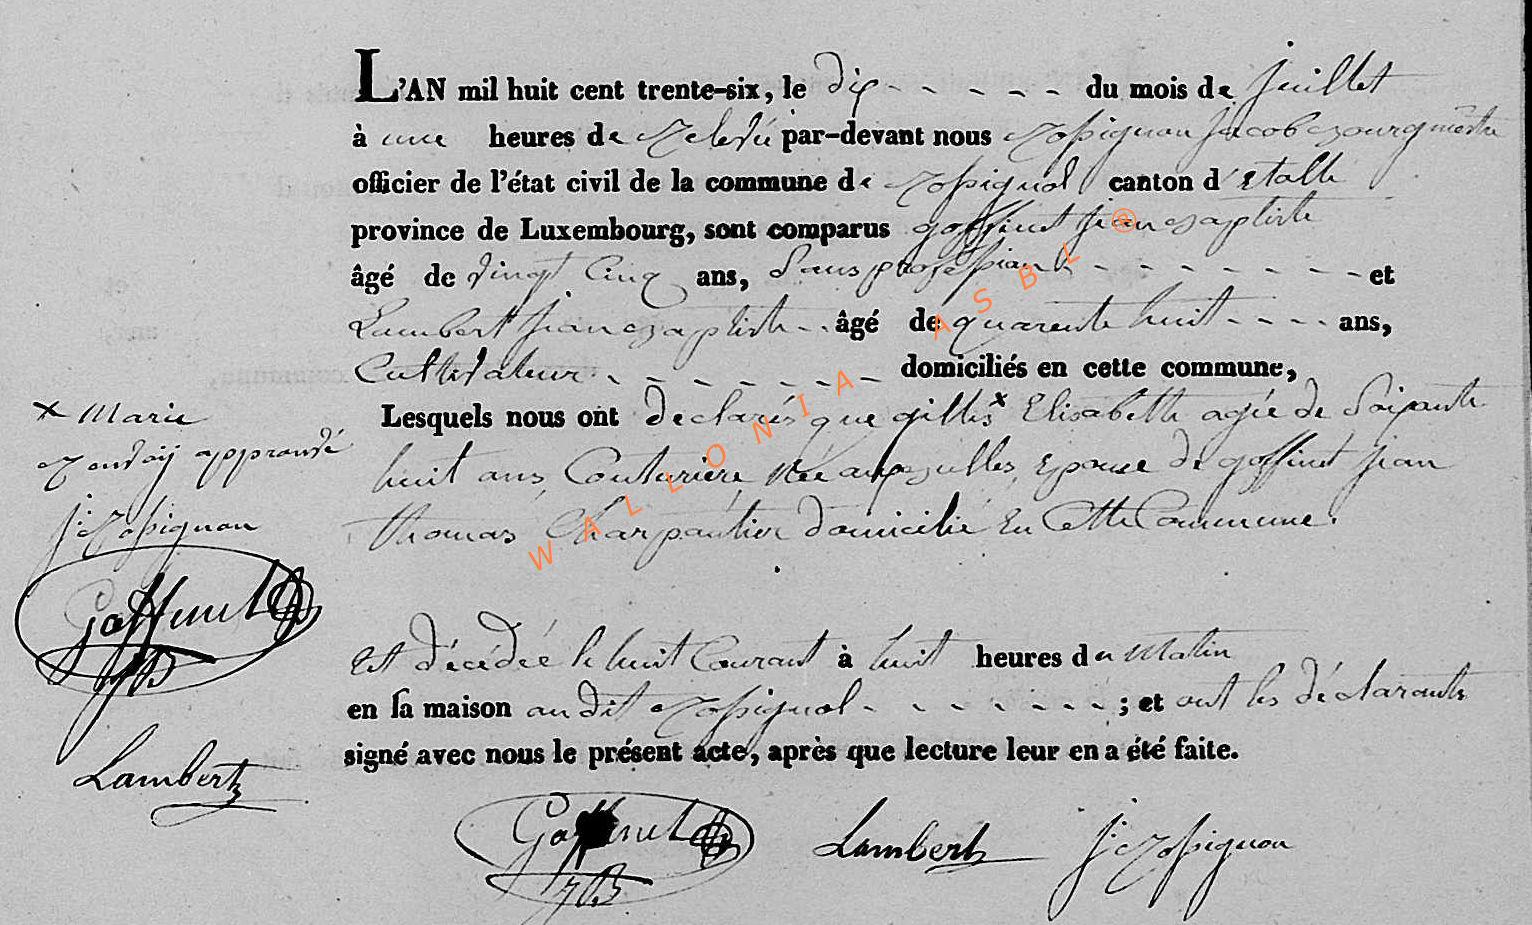 L'AN mil huit cent trente-six, le dix - - - - - du mois de juillet
à une heures de relevée par-devant nous Rossignon Jacob Bourgmestre
officier de l'état civil de la commune de Rossignol canton d'Etalle
province de Luxembourg, sont comparus goffinet jean Baptiste
âgé de vingt Cinq ans, Sans profession - - - - - - - et
Lambert jean Baptiste - - âgé de quarente huit - - - - ans,
Cultivateur - - - - - - - domiciliés en cette commune,
Lesquels nous ont declarés que gilles x Elisabette agée de Soixante
huit ans, Couturière née aux Bulles, Epouse de goffinet jean
thomas, Charpantier domicilié En Cette Commune.
Est décédée le huit Courant à huit heures du Matin
en sa maison audit Rossignol - - - - - - - ; et ont les déclarants
signé avec nous le présent acte, après que lecture leur en a été faite.
x Marie
approuvé
J: Rossignon
Goffinet
JB
Lambert
Goffinet
JB
Lambert
J: Rossignon
WALLONIA ASBL ®